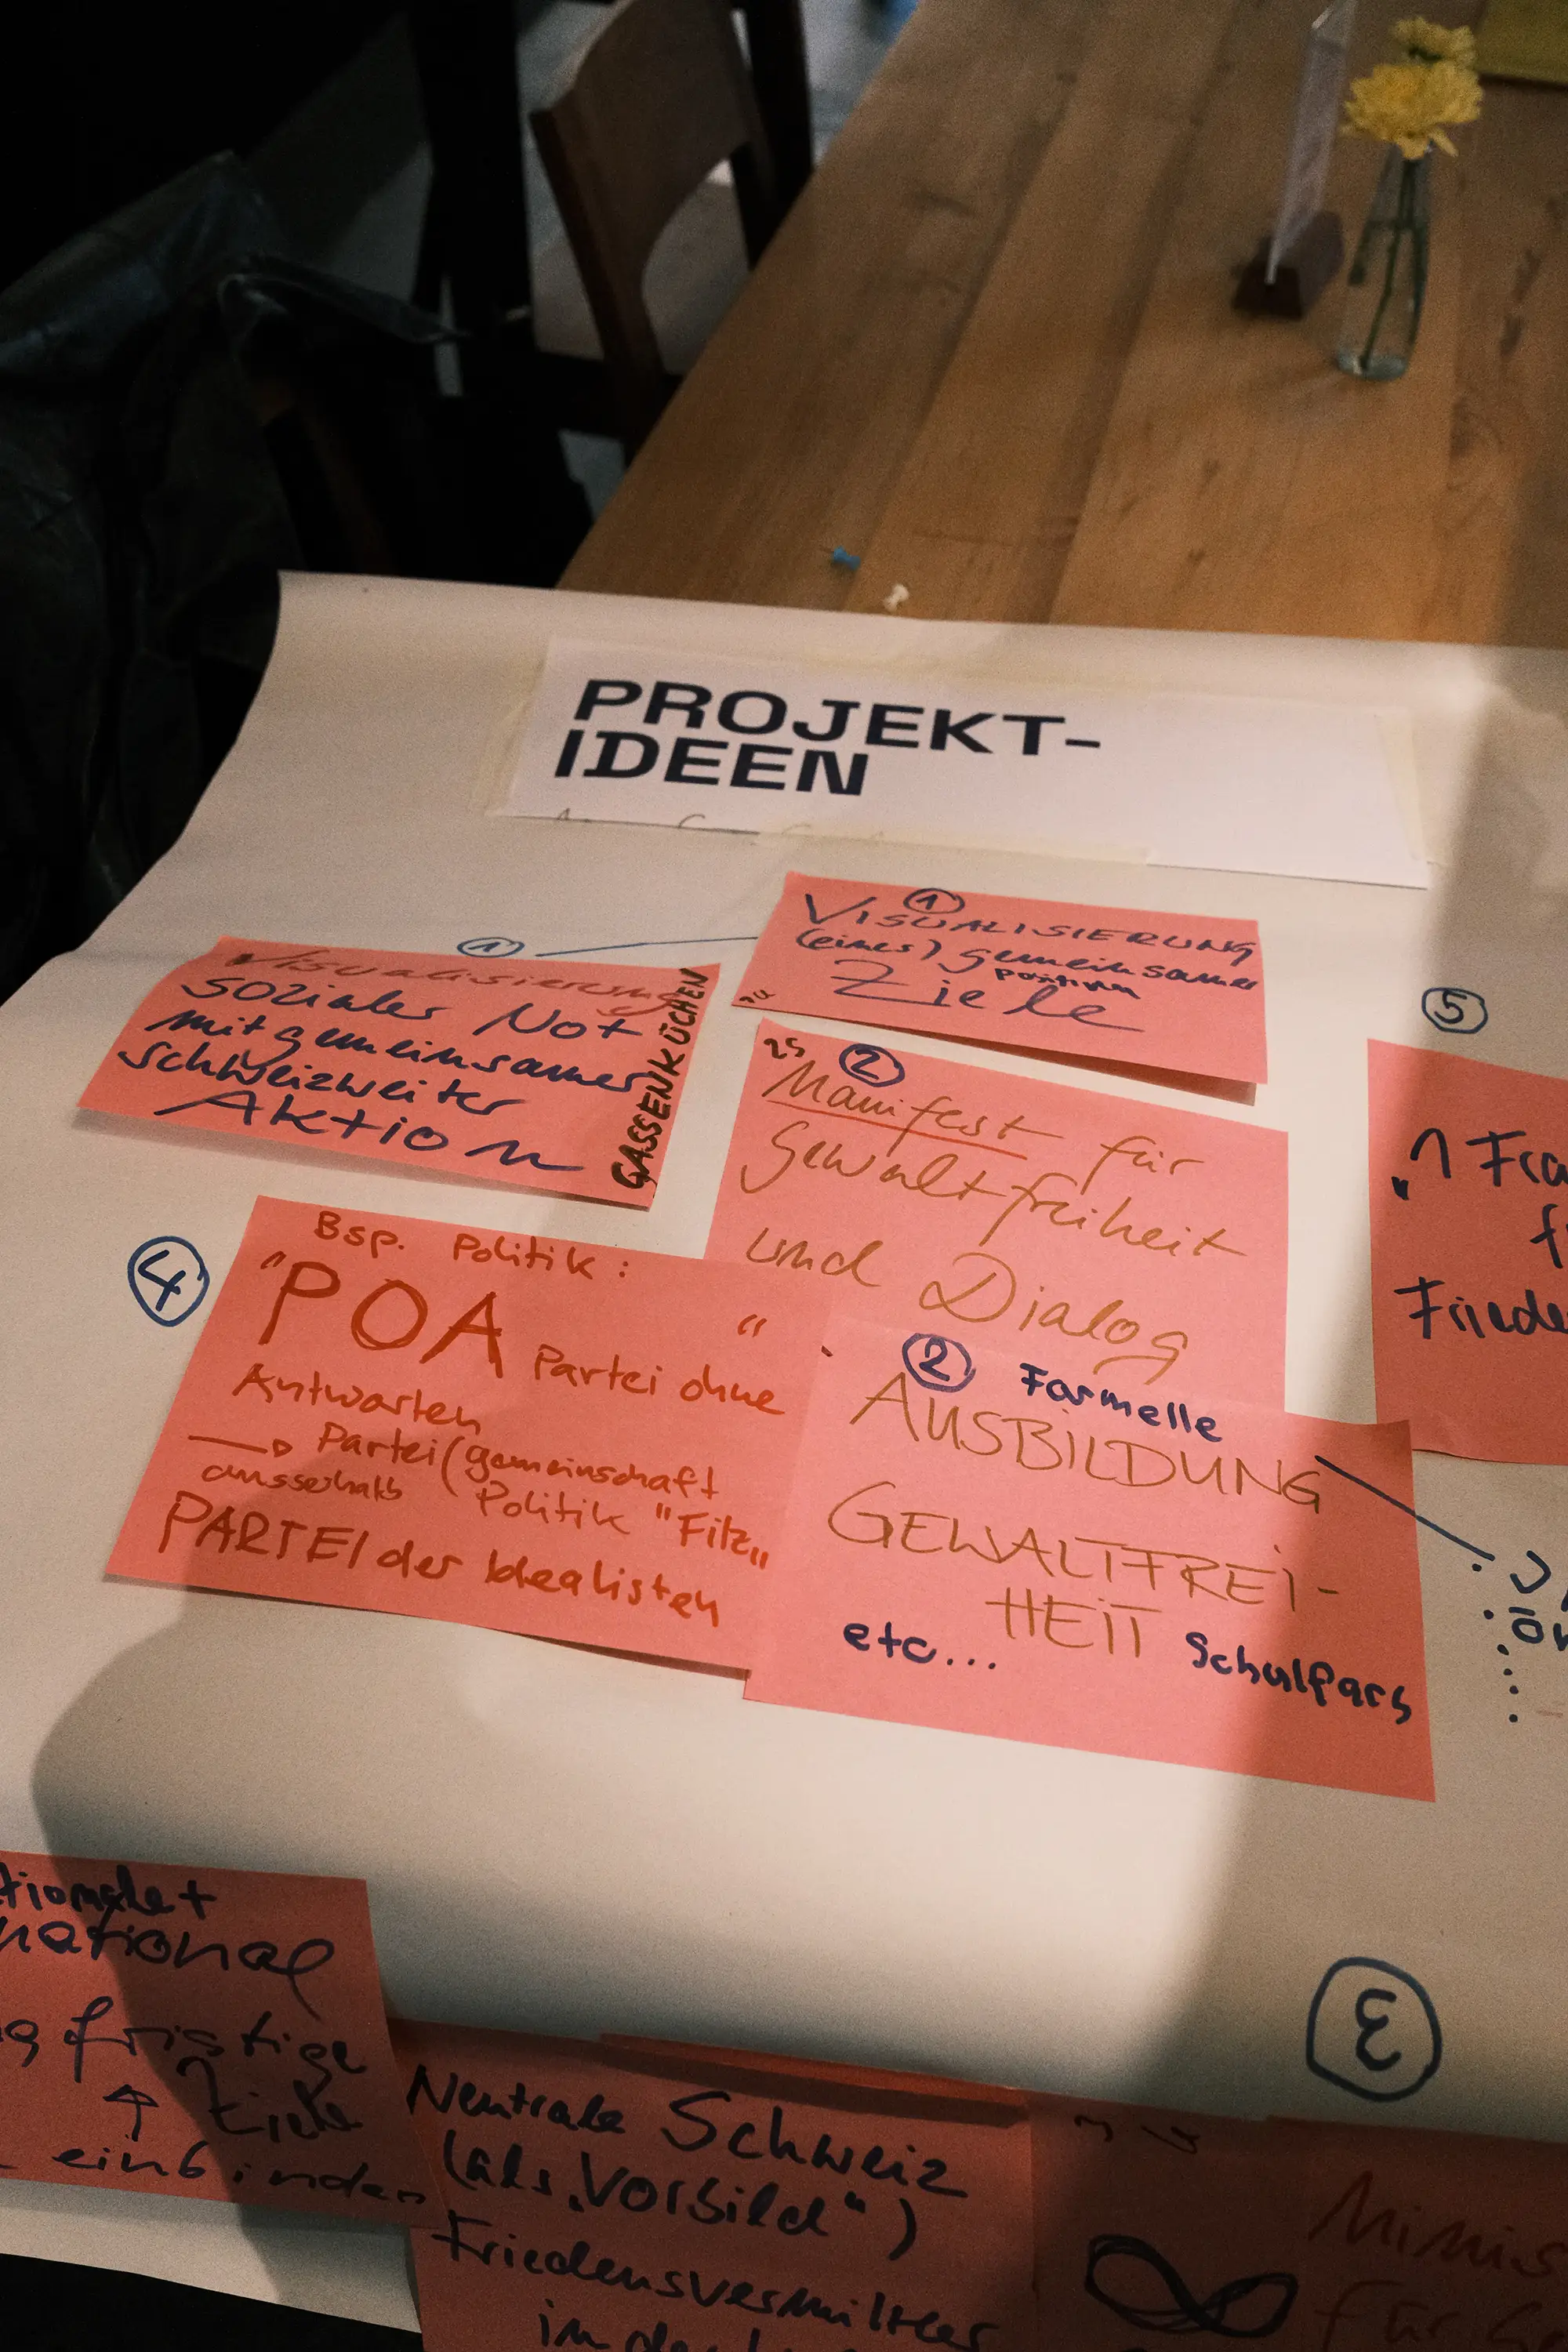 PROJEKT-
IDEEN
1
Visualisierung
sozialer Not
mit gemeinsamer
schweizweiter
Aktion
GASSENKÜCHEN
1
VISUALISIERUNG
(eines) gemeinsamer
positiven
Ziele
2
Manifest für
Gewaltfreiheit
und Dialog
5
"1 Fra
f
Friede
4
Bsp. Politik:
"POA"
Partei ohne
Antworten
Partei (gemeinschaft
ausserhalb Politik "Filz"
PARTEI der Idealisten
2 Formelle
AUSBILDUNG
GEWALTFREI-
HEIT
etc... Schulfans
tionale +
national
g fristige
Ziele
einbinden
Neutrale Schweiz
(als "Vorbild")
Friedensvermittler
in der
3
Minis
für